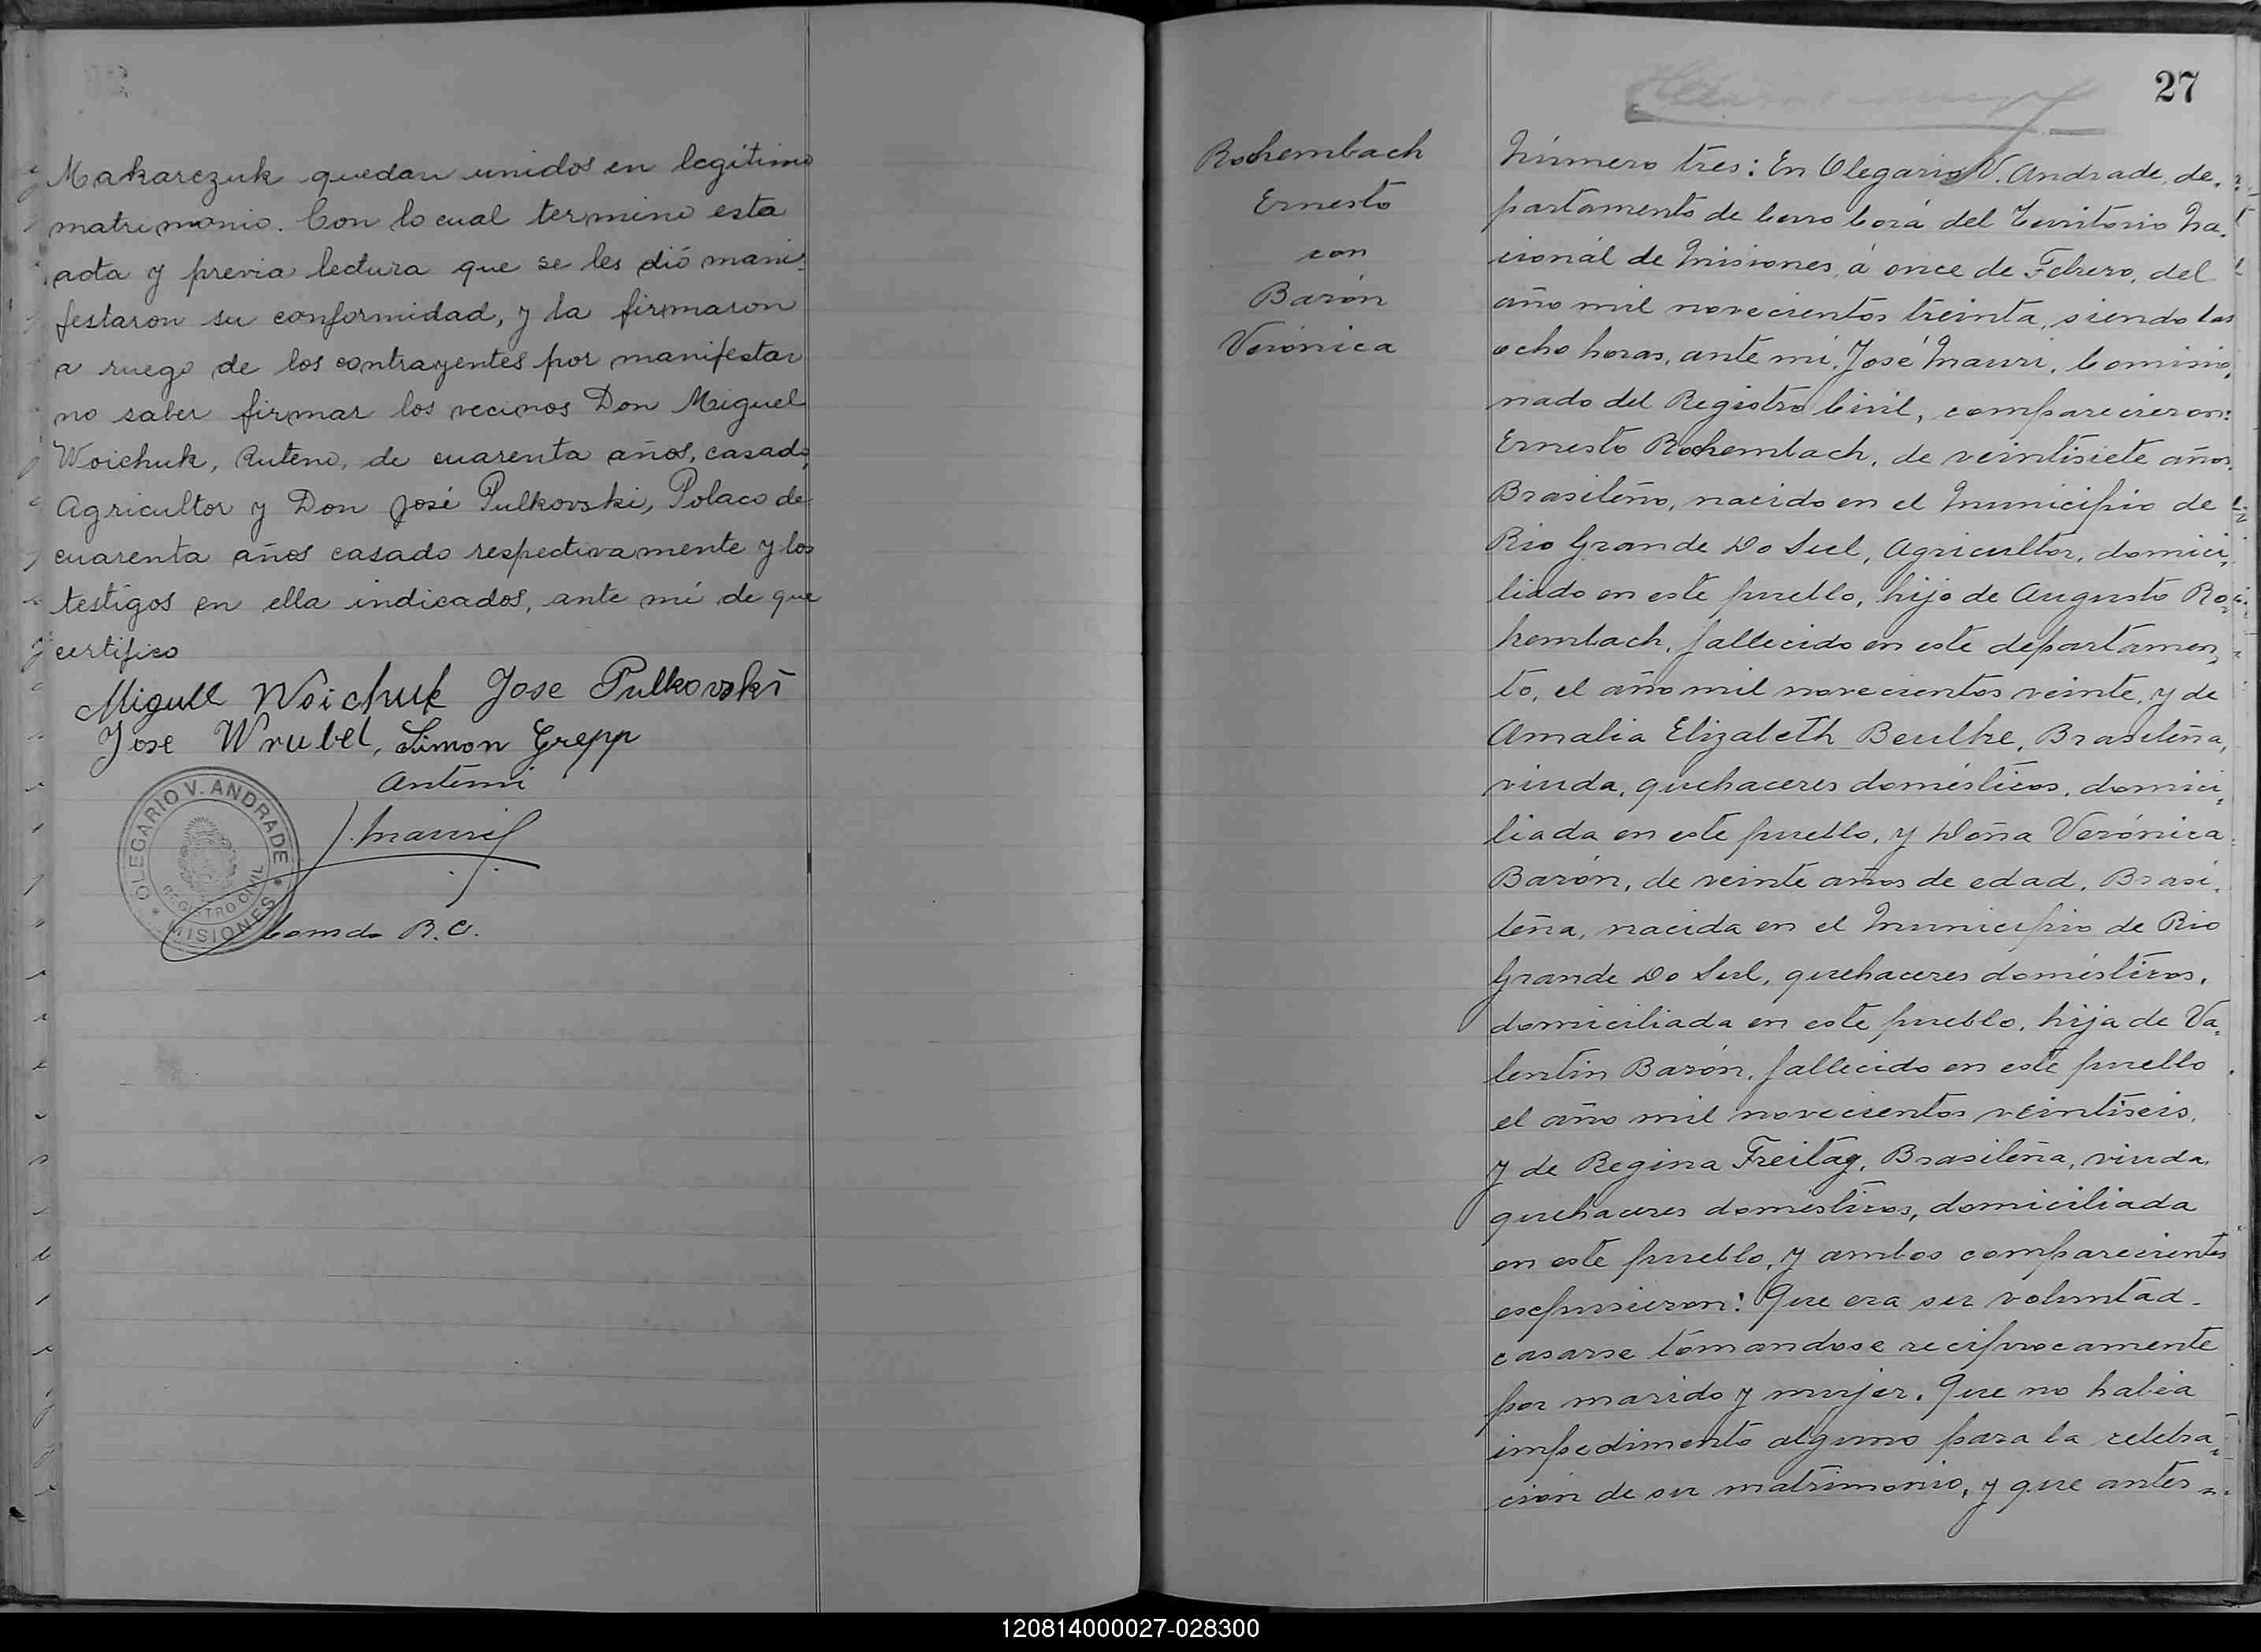 Makarczuk quedan unidos en legítimo
matrimonio. Con lo cual termino esta
acta y previa lectura que se les dió mani-
festaron su conformidad, y la firmaron
a ruego de los contrayentes por manifestar
no saber firmar los vecinos Don Miguel
Woichuk, Ruteno, de cuarenta años, casado,
Agricultor y Don José Pulkovski, Polaco de
cuarenta años casado respectivamente y los
testigos en ella indicados, ante mí de que
certifico
Miguel Woichuk Jose Pulkovski
Jose Wrubel, Simon Grepp
Ante mi
J. Mauri
OLEGARIO V. ANDRADE
REGISTRO CIVIL
* MISIONES *
Comdo R.C.
27
Rohembach
Ernesto
con
Barón
Verónica
Número tres: En Olegario V. Andrade, de-
partamento de Cerro Corá del Territorio Na-
cionál de Misiones, á once de Febrero, del
año mil novecientos treinta, siendo las
ocho horas, ante mí, José Mauri, Comisio-
nado del Registro Civil, comparecieron:
Ernesto Rohembach, de veintisiete años,
Brasileño, nacido en el Municipio de
Rio Grande Do Sul, Agricultor, domici-
liado en este pueblo, hijo de Augusto Ro-
hembach, fallecido en este departamen-
to, el año mil novecientos veinte, y de
Amalia Elizabeth Beulke, Brasileña,
viuda, quehaceres domésticos, domici-
liada en este pueblo, y Doña Verónica
Barón, de veinte años de edad, Brasi-
leña, nacida en el Municipio de Rio
Grande Do Sul, quehaceres domésticos,
domiciliada en este pueblo, hija de Va-
lentin Barón, fallecido en este pueblo
el año mil novecientos veintiseis,
y de Regina Freitag, Brasileña, viuda,
quehaceres domésticos, domiciliada
en este pueblo, y ambos comparecientes
expusieron: Que era su voluntad
casarse tomandose reciprocamente
por marido y mujer. Que no habia
impedimento alguno para la celebra-
ción de su matrimonio, y que antes
120814000027-028300